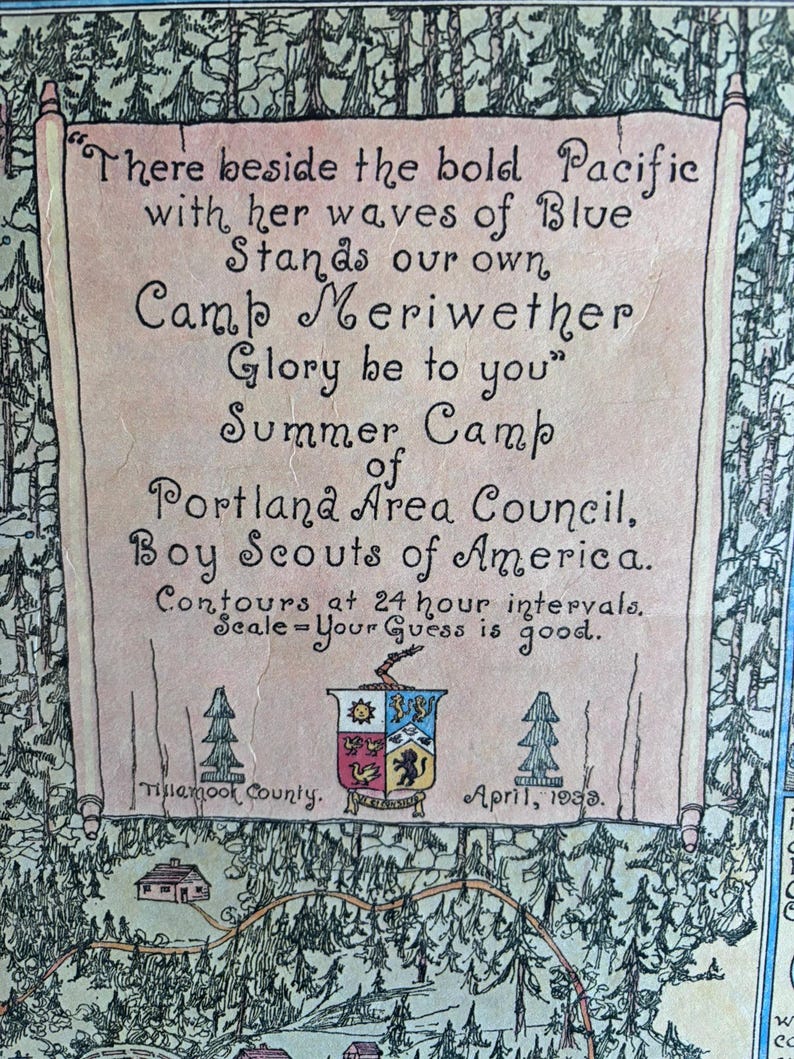 "There beside the bold Pacific
with her waves of Blue
Stands our own
Camp Meriwether
Glory be to you"
Summer Camp
of
Portland Area Council,
Boy Scouts of America.
Contours at 24 hour intervals.
Scale = Your Guess is good.
Tillamook County.
April, 1933.